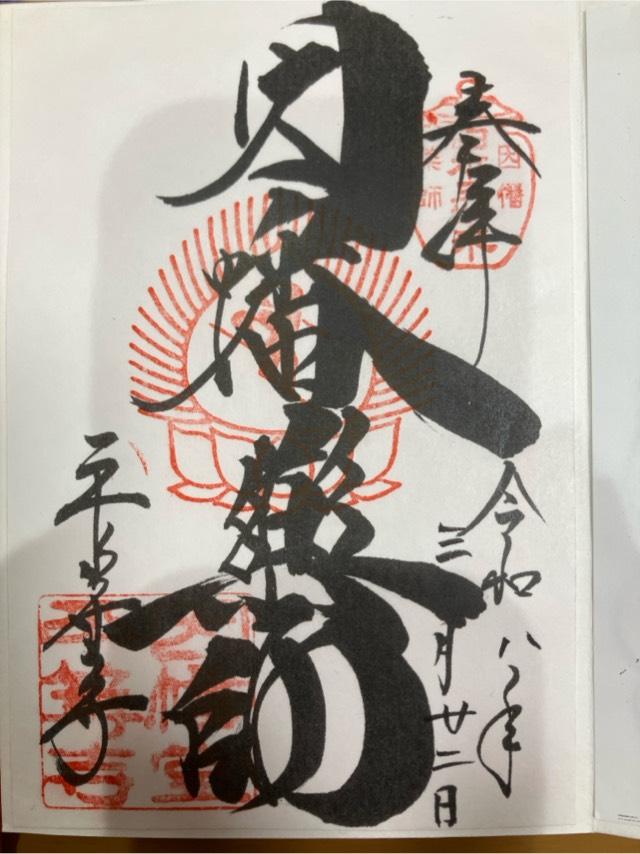 奉拝
因幡
令和八年
三月廿二日
因幡藥師
平等寺
因幡堂
平等寺